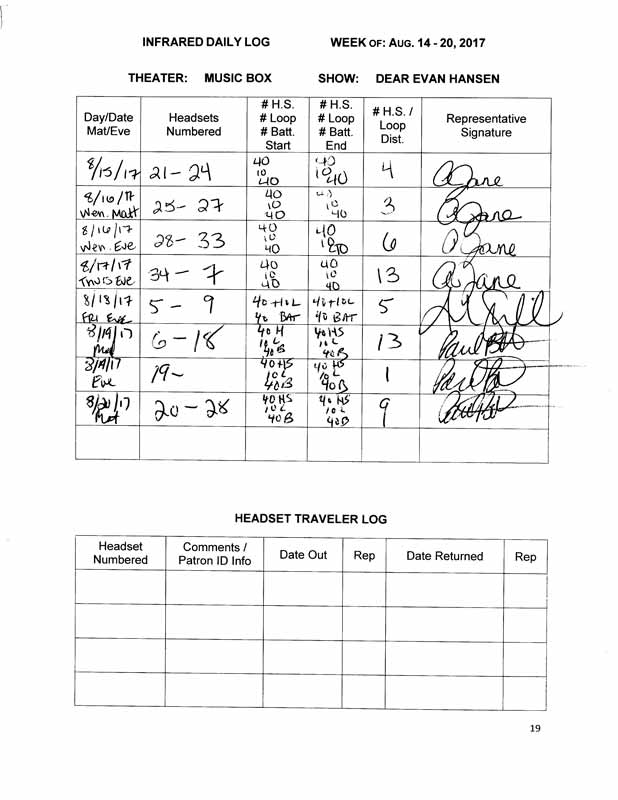 INFRARED DAILY LOG WEEK OF: AUG. 14 - 20, 2017
THEATER: MUSIC BOX SHOW: DEAR EVAN HANSEN
Day/Date Mat/Eve
Headsets Numbered
# H.S. # Loop # Batt. Start
# H.S. # Loop # Batt. End
# H.S. / Loop Dist.
Representative Signature
8/15/17 21-24 40 10 40 40 10 40 4 A Jane
8/16/17 Wen. Matt 25-27 40 10 40 40 10 40 3 A Jane
8/16/17 Wen. Eve 28-33 40 10 40 40 10 40 6 A Jane
8/17/17 Thurs Eve 34-7 40 10 40 40 10 40 13 A Jane
8/18/17 FRI Eve 5-9 40+10L 40 BAT 40+10L 40 BAT 5
8/19/17 Mat 6-18 40 H 10 L 40B 40HS 10 L 40B 13 Paul
8/19/17 Eve 19- 40HS 10L 40B 40 HS 10 L 40B 1 Paul
8/20/17 Mat 20-28 40HS 10L 40B 40 HS 10 L 40B 9 Paul
HEADSET TRAVELER LOG
Headset Numbered
Comments / Patron ID Info
Date Out
Rep
Date Returned
Rep
19